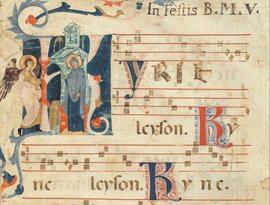 In Festis B. M. V.
KYRIE
leyson. Ky
rie leyson. Kyrie.